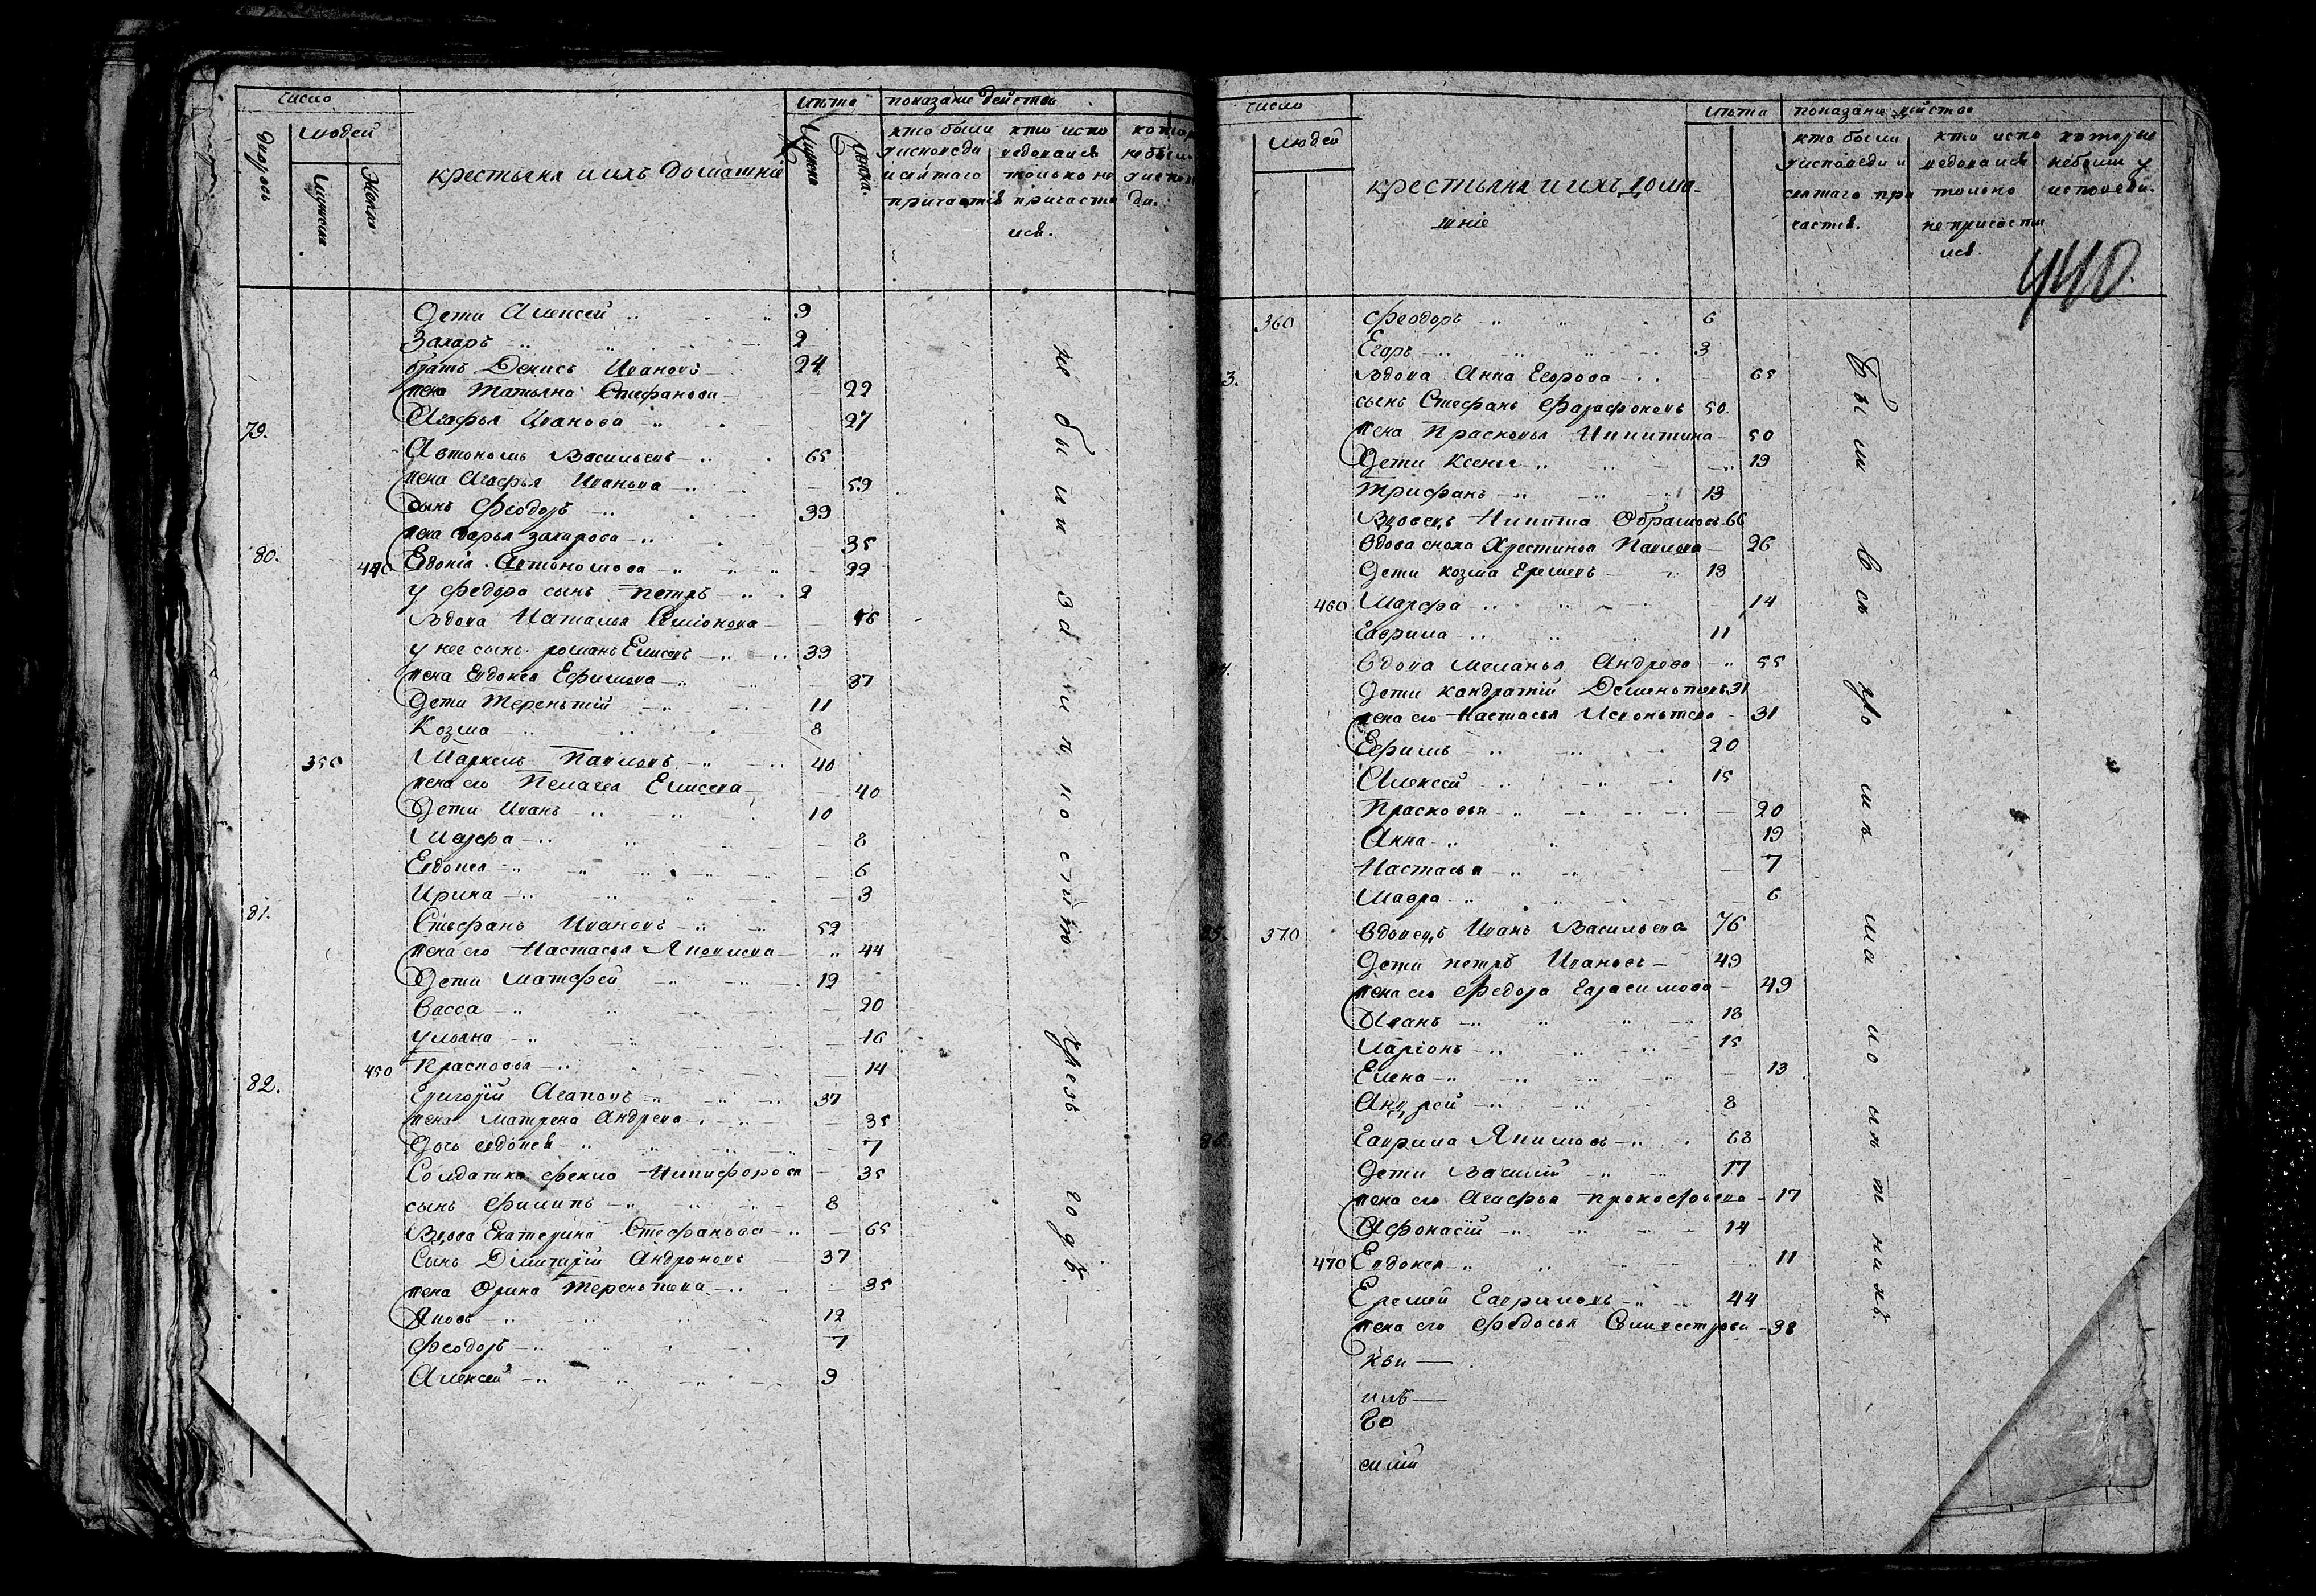 число
людей
дворовъ
мужска
женска
крестьяня и ихъ домашніе
лѣта
мужска
женска.
показание действа
кто были у исповеди и святаго причастія
кто испо ведовался только не причасти лся.
не были у испове ди.
Дети Алексей 9
Захаръ 2
братъ Денисъ Ивановъ 24
жена Татьяна Стефанова 22
Агафья Иванова 27
79.
Автономъ Васильевъ 65
жена Агафья Иванова 59
сынъ Феодоръ 39
жена Дарья Захарова 35
80. 440 Евдокія Автономова 22
у Федора сынъ Петръ 2
Вдова Наталья Симіонова 76
у нее сынъ романъ Елисеевъ 39
жена Евдокея Ефимова 37
Дети Терентий 11
Козма 8
350 Маркелъ Павловъ 40
жена его Пелагея Елисева 40
Дети Иванъ 10
Марфа 8
Евдокея 6
Ирина 3
81.
Стефанъ Ивановъ 52
жена его Настасья Яковлева 44
Дети Матфей 12
Васса 20
Ульяна 16
450 Прасковья 14
82.
Григорій Агаповъ 37
жена Матрена Андрева 35
Дочь евдокея 7
Солдатка Фекла Никифорова 35
сынъ Филипъ 8
Вдова Екатерина Стефанова 65
Сынъ Димитрій Андроновъ 37
жена Орина Терентьева 35
Яковъ 12
Феодоръ 7
Алексей 9
не были за
чрезъ годъ.
число
людей
крестьяня и ихъ дома-
шніе
лѣта
показание действа
кто были у исповеди и святаго при частія.
кто испо ведовался только не причасти лся.
которые небыли у исповеди.
440.
360 Феодоръ 6
Егоръ 3
3. Вдова Анна Егорова 65
сынъ Стефанъ Фарафоновъ 50.
жена Прасковья Никитина 50
Дети Ксенья 19
Трифанъ 13
Вдовецъ Никита Обрамовъ 66
Вдова сноха Хрестинья Павлова 26
Дети козма Еремевъ 13
460 Марфа 14
Гаврила 11
4. Вдова Меланья Андрева 55
Дети кондратій Дементьевъ 31
жена его Настасья Леонтева 31
Ефимъ 20
Алексей 15
Прасковья 20
Анна 19
Настасья 7
Мавра 6
85. 370 Вдовецъ Иванъ Васильева 76
Дети петръ Ивановъ 49
жена его Федора Гарасимова 49
Иванъ 18
Ларіонъ 15
Елена 13
Андрей 8
86. Гаврила Якимовъ 68
Дети Василій 17
жена его Агафья прокофьева 17
Афонасій 14
470 Евдокея 11
Еремей Гавриловъ 44
жена его Федосья Силвестрова 38
были все
малолѣтнихъ.